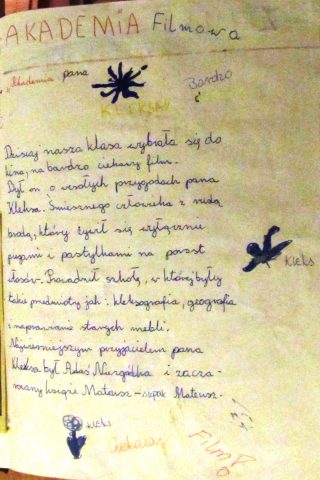 AKADEMIA Filmowa
"Akademia pana
KLEKSA"
Bardzo
Dzisiaj nasza klasa wybrała się do
kina, na bardzo ciekawy film.
Był on o wesołych przygodach pana
Kleksa. Śmiesznego człowieka z rudą
brodą, który żywił się wyłącznie
piegami i pastylkami na porost
włosów. Prowadził szkołę, w której były
takie przedmioty jak: kleksografia, geografia
i naprawianie starych mebli.
Najwierniejszym przyjacielem pana
Kleksa był Adaś Niezgódka i zacza-
rowany książe Mateusz - szpak Mateusz.
KLEKS
KLEKS
Ciekawy
Film